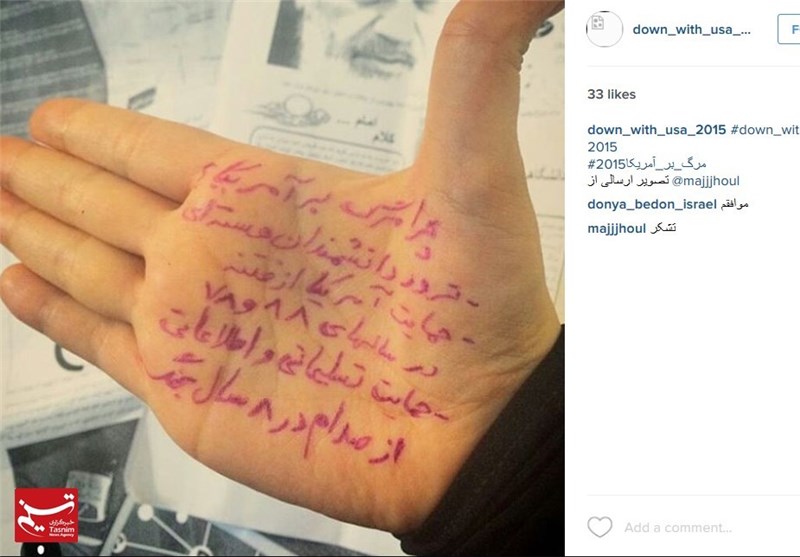 down_with_usa_...
33 likes
down_with_usa_2015 #down_wit
2015
#مرگ_بر_آمریکا2015
تصویر ارسالی از @majjjhoul
donya_bedon_israel موافقم
majjjhoul تشکر
Add a comment...
امام ...
کلام
چرا مرگ بر آمریکا؟
- ترور دانشمندان هسته‌ای
- حمایت آمریکا از فتنه
در سالهای ۸۸ و ۷۸
- حمایت تسلیحاتی و اطلاعاتی
از صدام در ۸ سال جنگ
تسنیم
خبرگزاری
Tasnim
News Agency